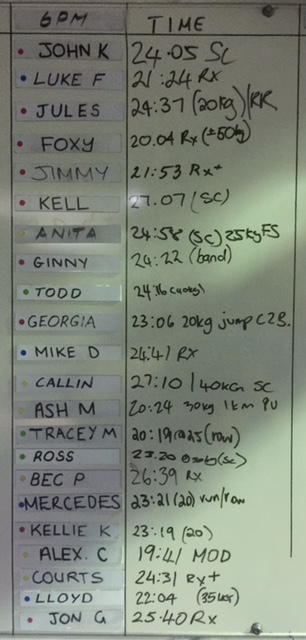 6PM TIME
JOHN K 24.05 SC
LUKE F 21:24 Rx
JULES 24:37 (20kg)/RR
FOXY 20.04 Rx (±50kg)
JIMMY 21:53 Rx+
KELL 27.07 / (SC)
ANITA 24:58 (SC) 25kg FS
GINNY 24:22 (band)
TODD
GEORGIA 23:06 20kg jump C2B.
MIKE D Rx
CALLIN 27:10 / 40KG SC
ASH M 20:24 30kg 1km PU
TRACEY M 20:19 @25 (row)
ROSS (SC)
BEC P 26:39 Rx
MERCEDES 23:21 (20) run/row
KELLIE K 23:19 (20)
ALEX. C 19:41 MOD
COURTS 24:31 Rx+
LLOYD 22:04
JON G 25.40 Rx